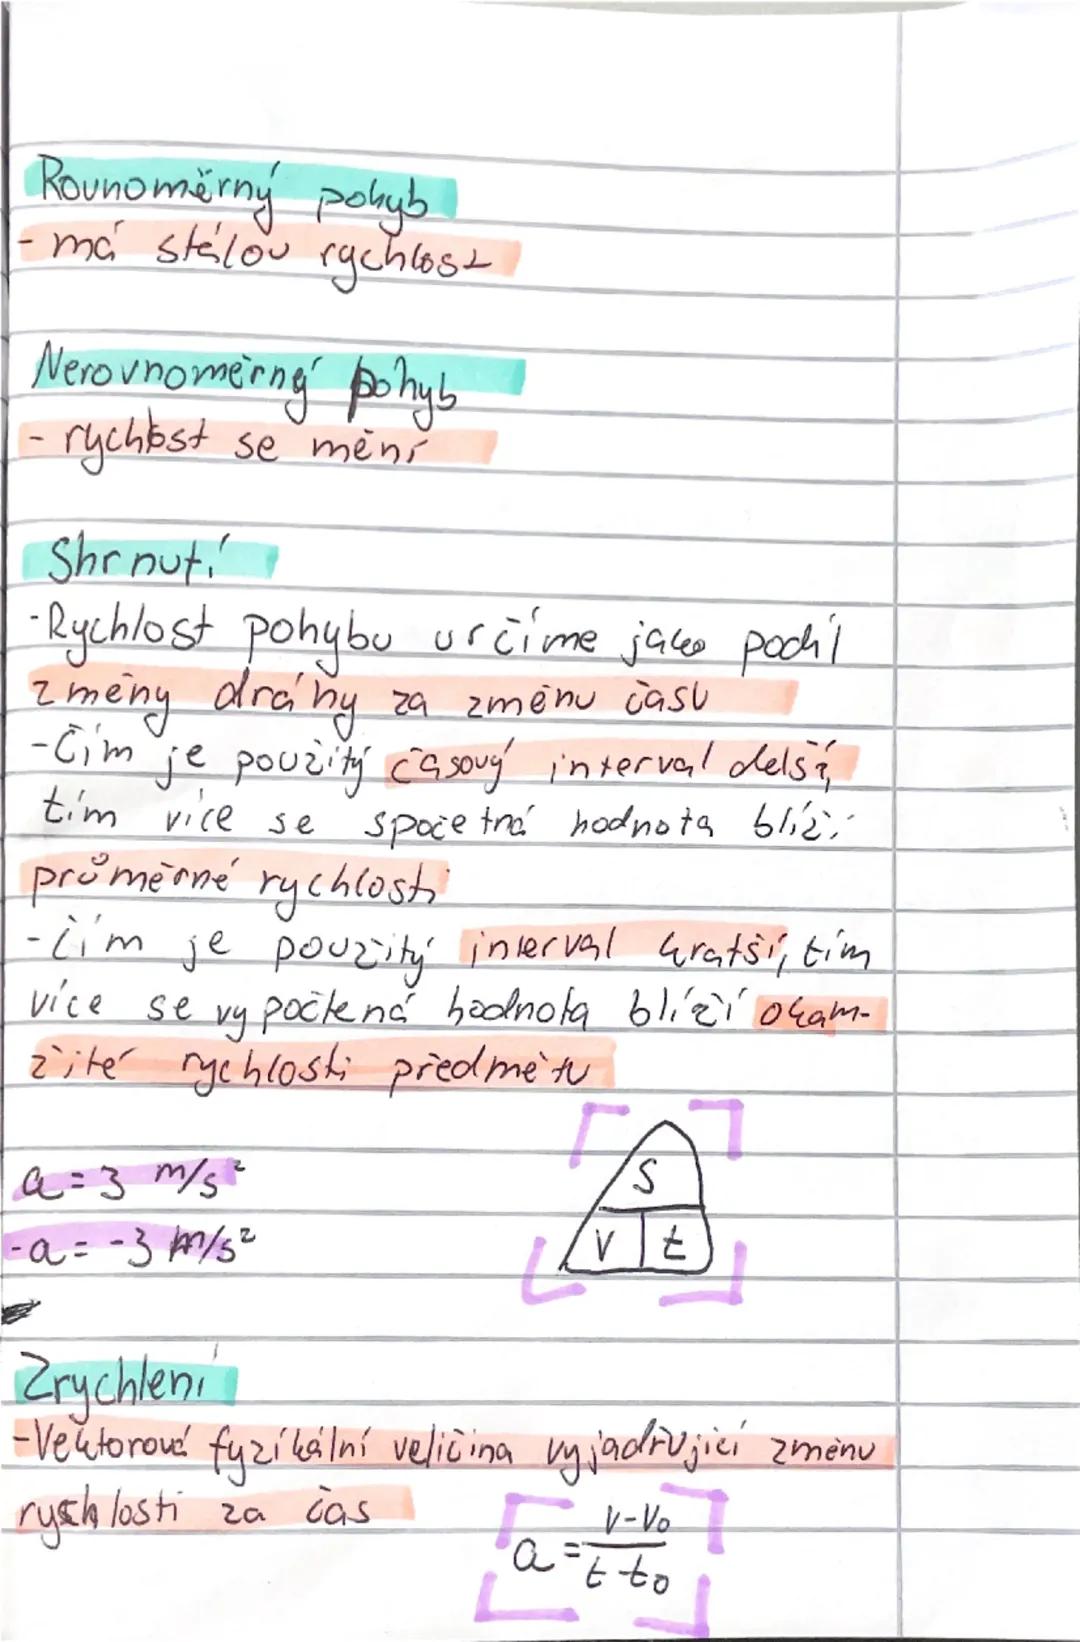 Rovnoměrný pohyb
- má stálou rychlost
Nerovnoměrný pohyb
- rychlost se mění
Shrnutí
-Rychlost pohybu určíme jako podíl
změny dráhy za změnu času
-Čím je použitý časový interval delší,
tím více se spočetná hodnota blíží
průměrné rychlosti
-čím je použitý interval kratší, tím
více se vypočtená hodnota blíží okam-
žité rychlosti předmětu
a = 3 m/s²
-a = -3 m/s²
s
v t
Zrychlení
-Vektorová fyzikální veličina vyjadřující změnu
rychlosti za čas
a = \frac{v-v₀}{t-t₀}